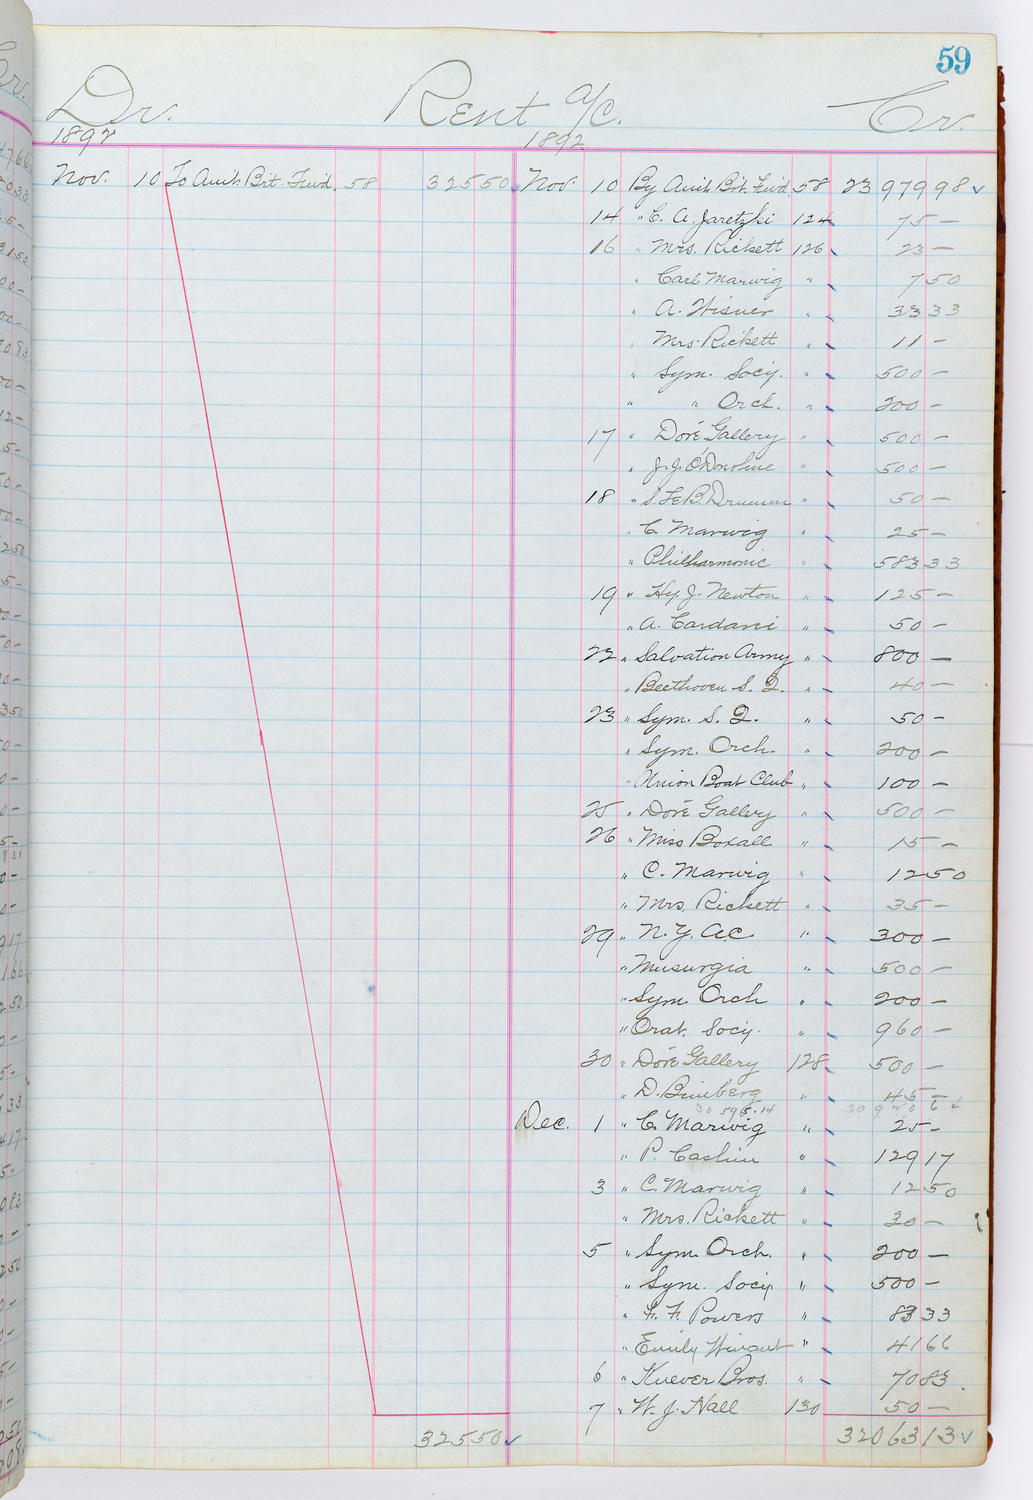 59
Dr. Rent a/c. Cr.
1892 1892
Nov. 10 To Amt. Brt. Fwd. 58 325 50 Nov. 10 By Amt. Brt. Fwd. 58 23 979 98
14 " C. A. Jaretzki 124 75 —
16 " Mrs. Rickett 126 23 —
" Carl Marwig " 7 50
" A. Wisner " 33 33
" Mrs. Rickett " 11 —
" Sym. Socy. " 500 —
" " Orch. " 200 —
17 " Doré Gallery " 500 —
" J. J. O'Donohue " 500 —
18 " " 50 —
" C. Marwig " 25 —
" Philharmonic " 583 33
19 " Hy. J. Newton " 125 —
" A. Cardani " 50 —
22 " Salvation Army " 800 —
" Beethoven S. Q. " 40 —
23 " Sym. S. Q. " 50 —
" Sym. Orch. " 200 —
" Union Boat Club " 100 —
25 " Doré Gallery " 500 —
26 " Miss Boxall " 15 —
" C. Marwig " 12 50
" Mrs. Rickett " 35 —
29 " N. Y. A.C. " 300 —
" Musurgia " 500 —
" Sym. Orch " 200 —
" Orat. Socy. " 960 —
30 " Doré Gallery 128 500 —
" D. " 45 —
Dec. 1 " C. Marwig " 25 —
" P. " 129 17
3 " C. Marwig " 12 50
" Mrs. Rickett " 30 —
5 " Sym. Orch. " 200 —
" Sym. Socy. " 500 —
" F. F. Powers " 83 33
" Emily Winant " 41 66
6 " Knever Bros. " 70 83
7 " W. J. Hall 130 50 —
325 50 32 063 13